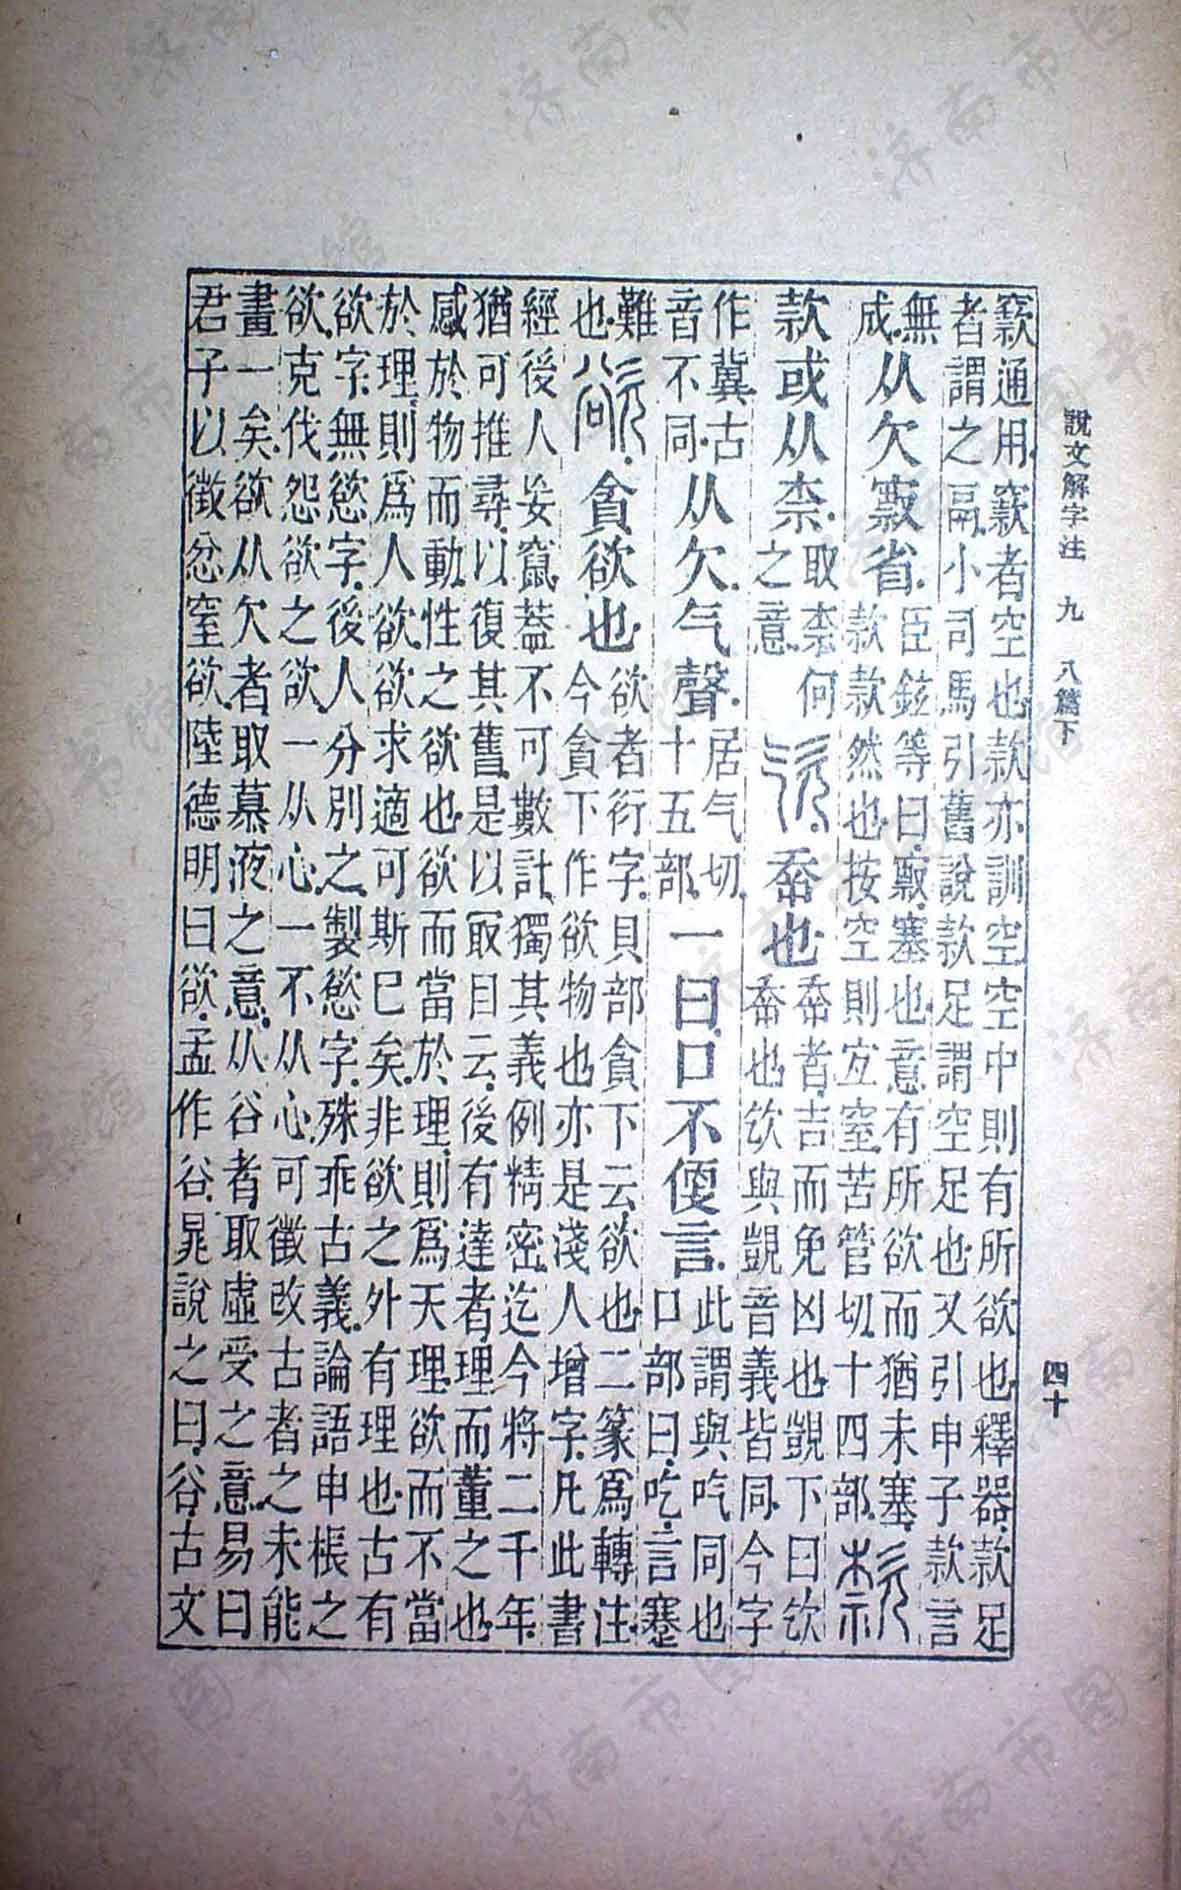 說文解字注 九 八篇下 四十
窾通用窾者空也款亦訓空空中則有所欲也釋器款足
者謂之鬲小司馬引舊說款足謂空足也又引申子款言
無
成
从欠㝮省
臣鉉等曰㝮塞也意有所欲而猶未塞
款款然也按空則宐窒苦管切十四部
款
款或从柰
取柰何
之意
㰟
𡴘也
𡴘者吉而免凶也覬下曰㰟
𡴘也㰟與覬音義皆同今字
作冀古
音不同
从欠气聲
居气切
十五部
一曰口不便言
此謂與吃同也
口部曰吃言蹇
難
也
欲
貪欲也
欲者衍字貝部貪下云欲也二篆爲轉注
今貪下作欲物也亦是淺人增字凡此書
經後人妄竄蓋不可數計獨其義例精密迄今將二千年
猶可推尋以復其舊是以冣目云後有達者理而董之也
感於物而動性之欲也欲而當於理則爲天理欲而不當
於理則爲人欲欲求適可斯已矣非欲之外有理也古有
欲字無慾字後人分別之製慾字殊乖古義論語申棖之
欲克伐怨欲之欲一从心一不从心可徵改古者之未能
畫一矣欲从欠者取慕液之意从谷者取虛受之意易曰
君子以徵忿窒欲陸德明曰欲孟作谷晁說之曰谷古文